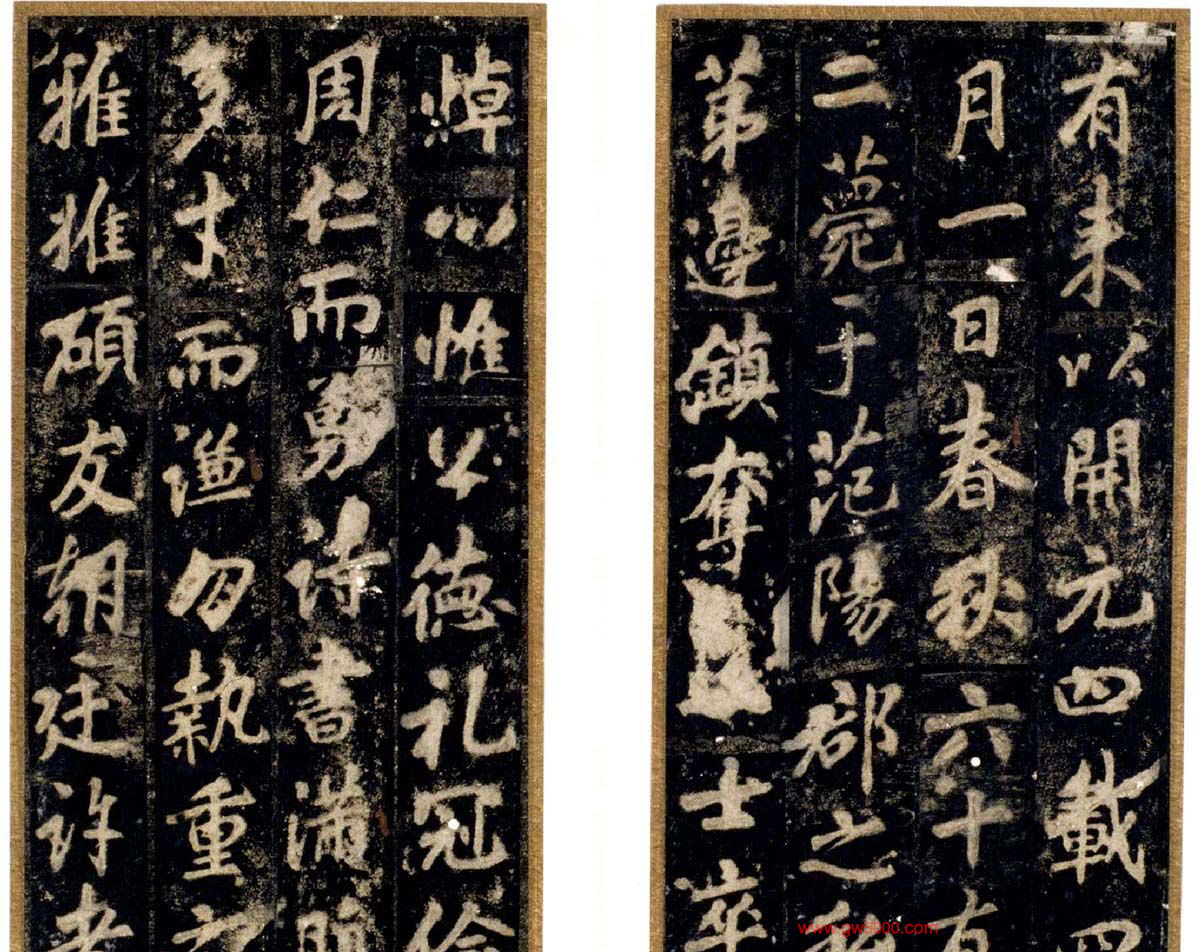 有来以開元四載四
月一日春秋六十有
二薨于范陽郡之
苐邊鎮奪士卒
悼心惟公德礼冠倫
周仁而勇詩書滿
多才而謙勿執重
雅推碩友朝廷許
www.gw5000.com